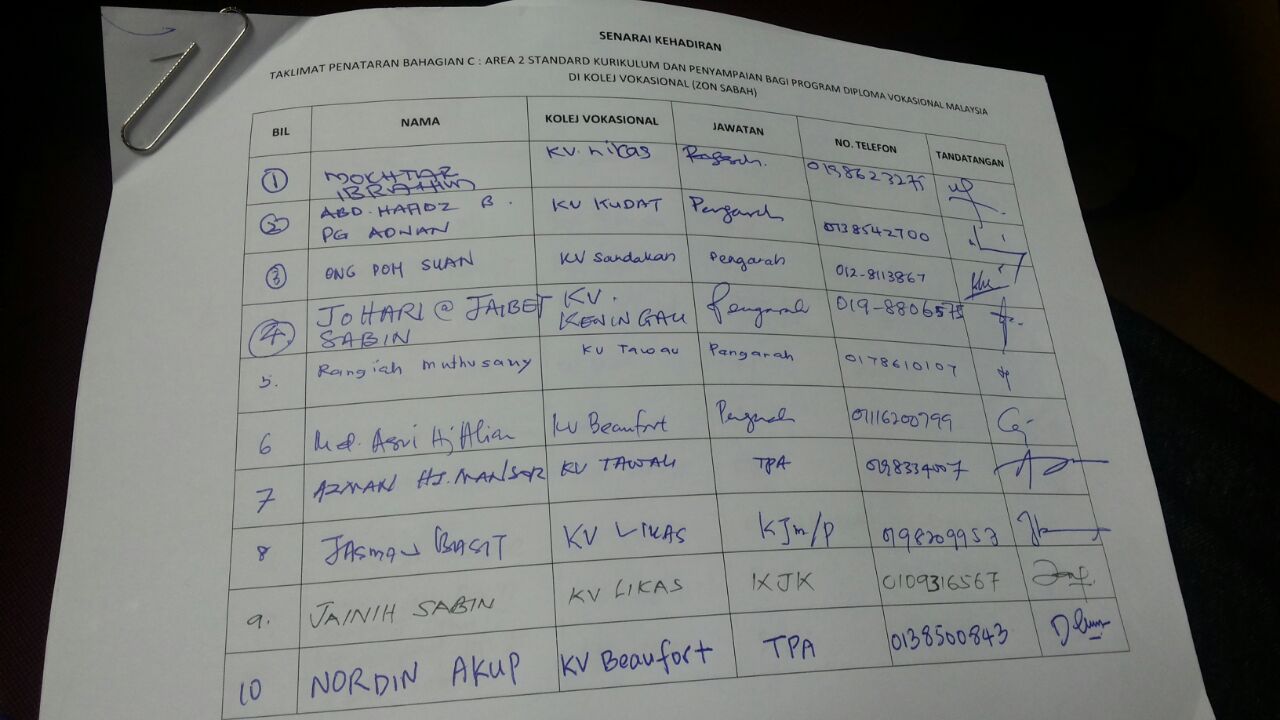 SENARAI KEHADIRAN
TAKLIMAT PENATARAN BAHAGIAN C : AREA 2 STANDARD KURIKULUM DAN PENYAMPAIAN BAGI PROGRAM DIPLOMA VOKASIONAL MALAYSIA
DI KOLEJ VOKASIONAL (ZON SABAH)
BIL NAMA KOLEJ VOKASIONAL JAWATAN NO. TELEFON TANDATANGAN
1 MOKHTAR IBRAHIM KV. Likas 0198623275
2 ABD. HAFIDZ B. PG ADNAN KV KUDAT Pengarah 0138542700
3 ONG POH SUAN KV Sandakan Pengarah 012-8113867
4. JOHARI @ JAIBET SABIN KV. KENINGAU Pengarah 019-8806575
5. Rangiah Muthusamy KV Tawau Pangarah 0178610107
6 Md. Asri Hj Alian KV Beaufort Pengarah 01116200799
7 AZMAN HJ. MANSOR KV TAWAU TPA 0198334007
8 JASMAN BASIT KV LIKAS KJm/P 0198209953
9. JAINIH SABIN KV LIKAS KJK 0109316567
10 NORDIN AKUP KV Beaufort TPA 0138500843